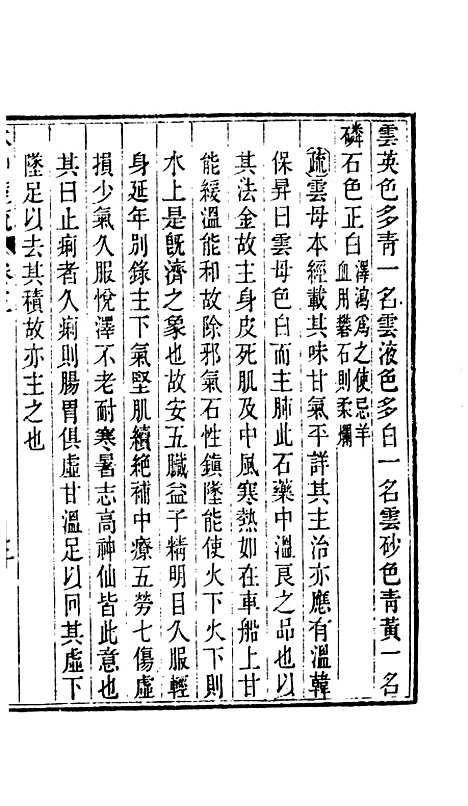 雲英色多青一名雲液色多白一名雲砂色青黃一名
磷石色正白澤瀉爲之使忌羊
血用礬石則柔爛
疏雲母本經載其味甘氣平詳其主治亦應有溫韓
保昇曰雲母色白而主肺此石藥中溫良之品也以
其法金故主身皮死肌及中風寒熱如在車船上甘
能緩溫能和故除邪氣石性鎮墜能使火下火下則
水上是既濟之象也故安五臟益子精明目久服輕
身延年別錄主下氣堅肌續絕補中療五勞七傷虛
損少氣久服悅澤不老耐寒暑志高神仙皆此意也
其曰止痢者久痢則腸胃俱虛甘溫足以回其虛下
墜足以去其積故亦主之也